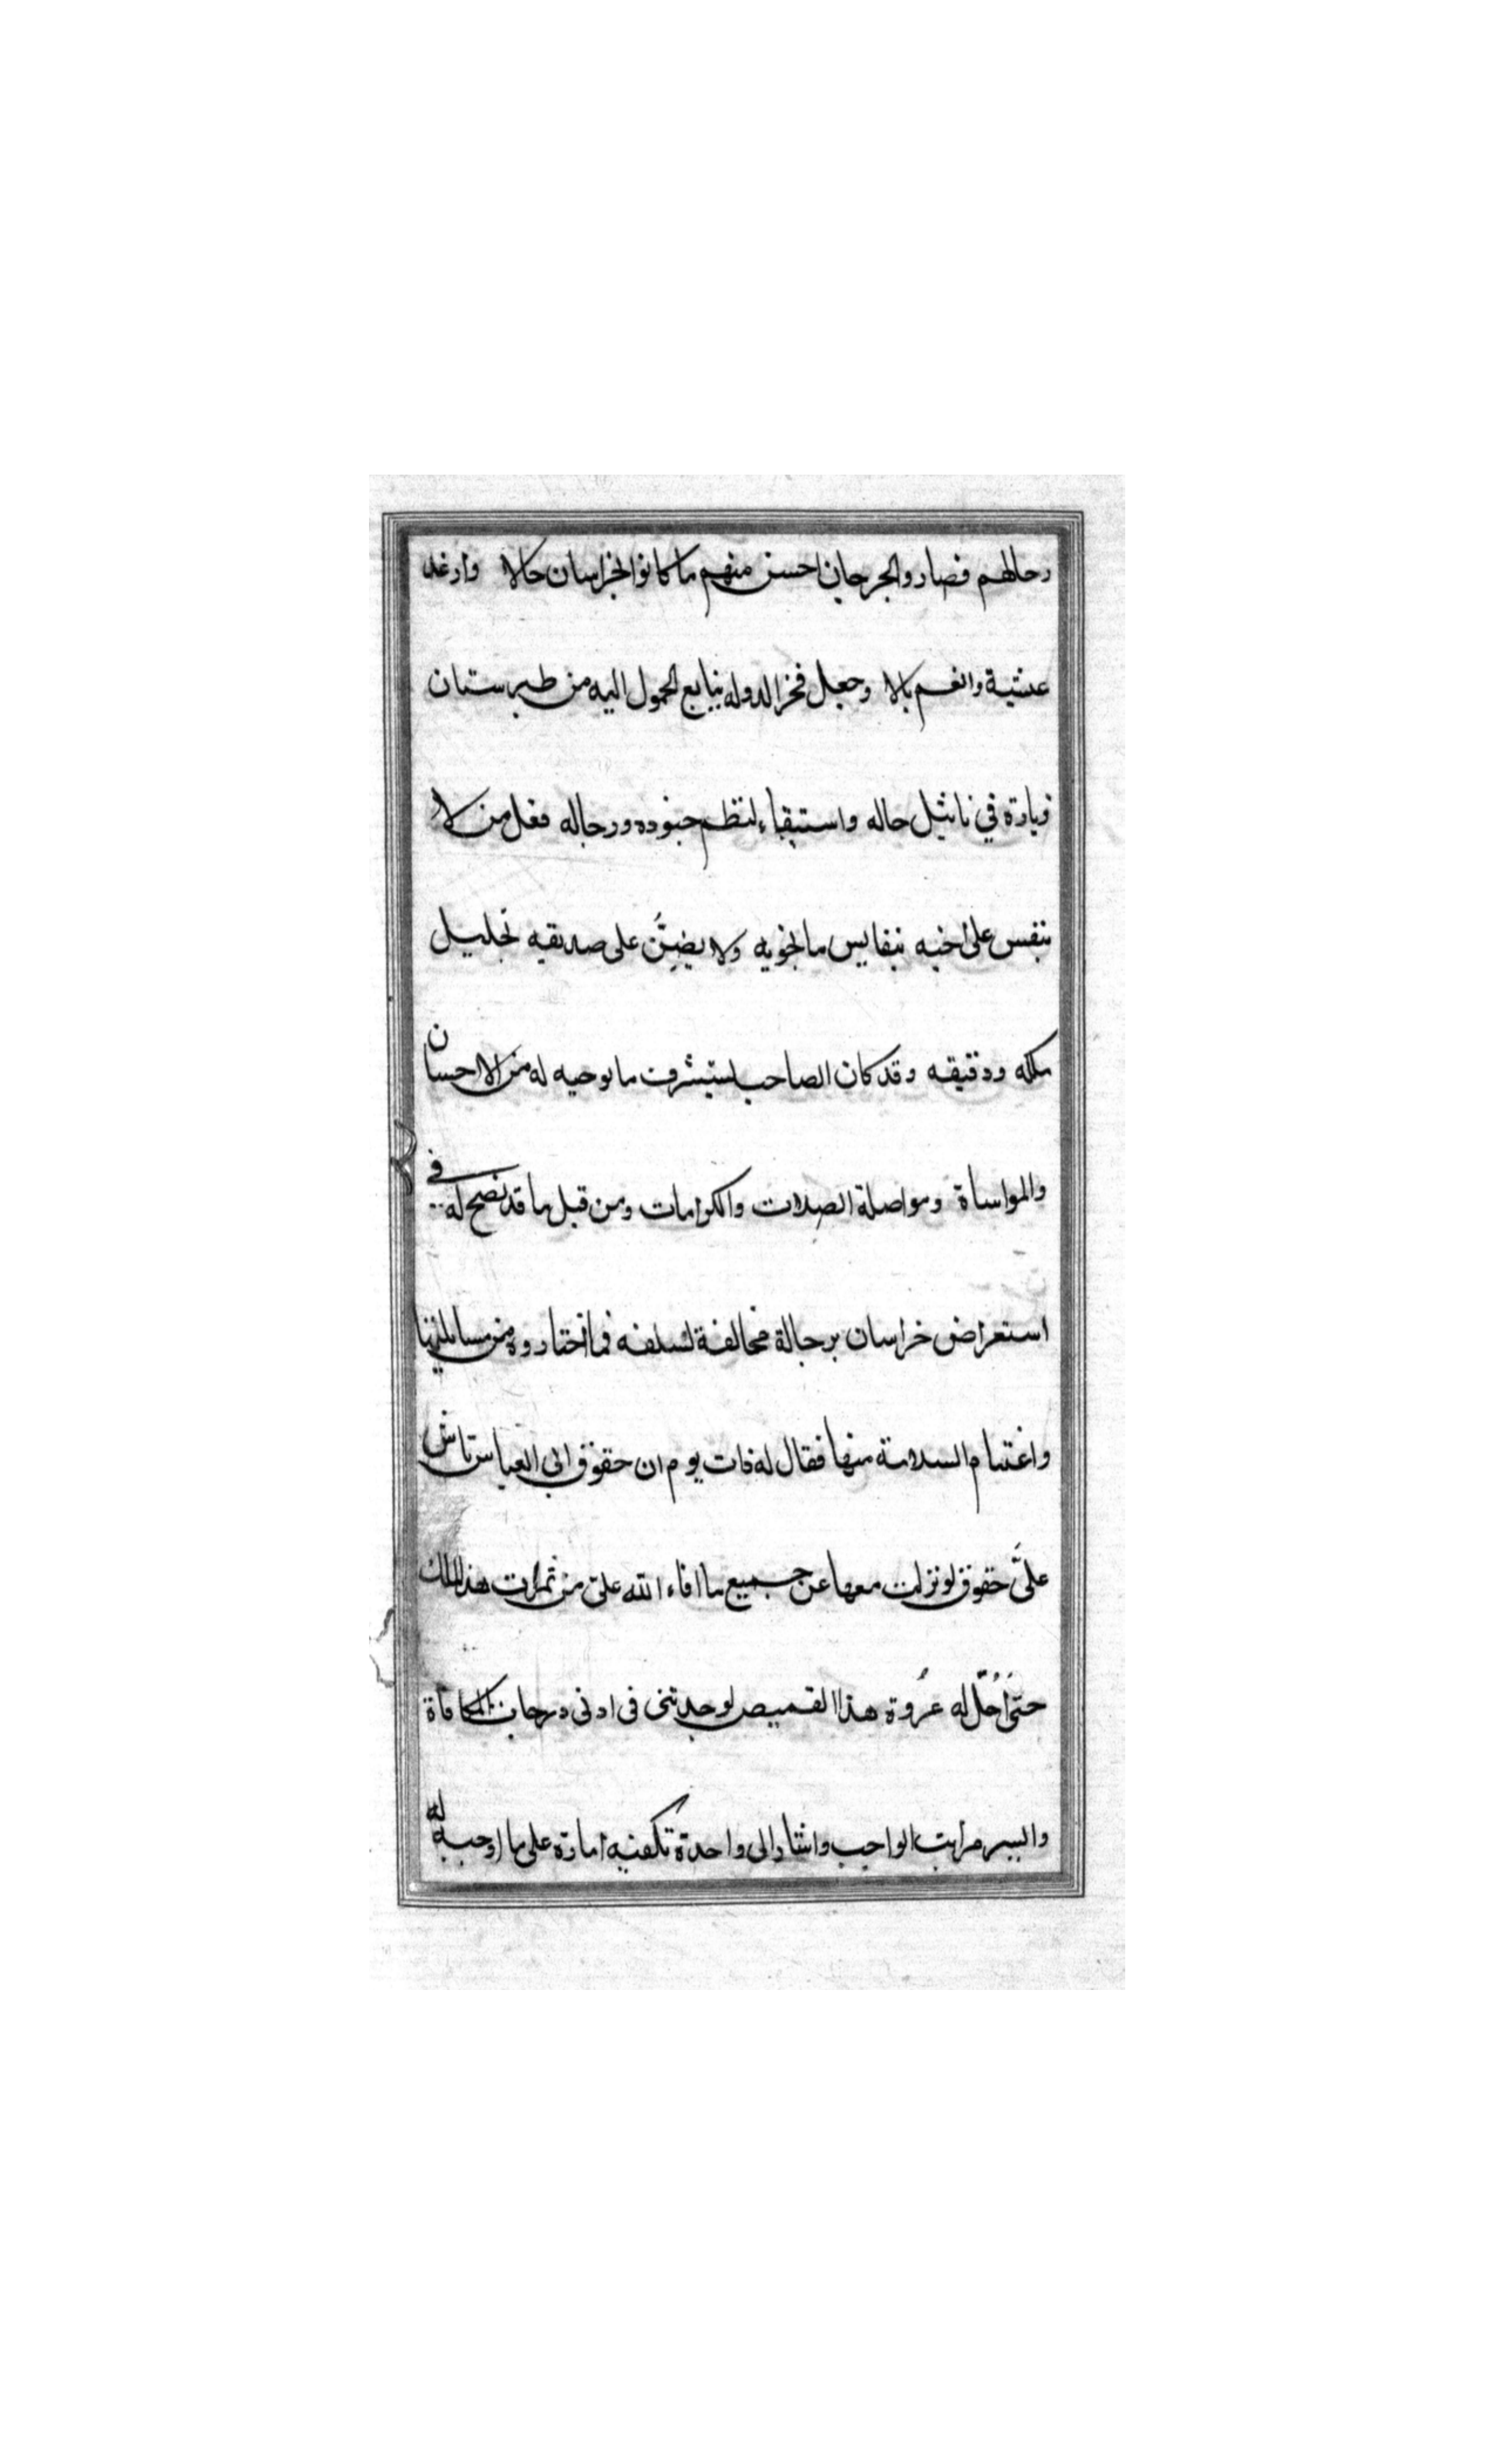 رحالهم فصاروا بجرجان احسن منهم ما كانوا بخراسان حالا وارغد
عيشة وانعم بالا وجعل فخر الدوله يتابع الحمول اليه من طبرستان
زيادة في تاثيل حاله واستبقاء لنظم جنوده ورجاله فعل من لا
ينفس على اخيه بنفايس ما يحويه ولا يضِنُّ على صديقيه بجليل
ملكه ودقيقه وقد كان الصاحب يستشرف ما يوجبه له من الاحسان
والمواساة ومواصلة الصلات والكرامات ومن قبل ما قد نصح له في
استعراض خراسان برجالة مخالفة لسلفه فما اختاروه من مسالمتها
واغتنام السلامة منها فقال له ذات يوم ان حقوق ابي العباس تاش
علىَّ حقوق لو نزلت معها عن جميع ما افاء الله علىّ من ثمرات هذا الملك
حتى اَحُلّ له عُروة هذا القميص لوجدتنى فى ادنى درجات المكافاة
وايسر مراتب الواجب واشار الى واحدة تكفيه امارة على ما اوجبه له